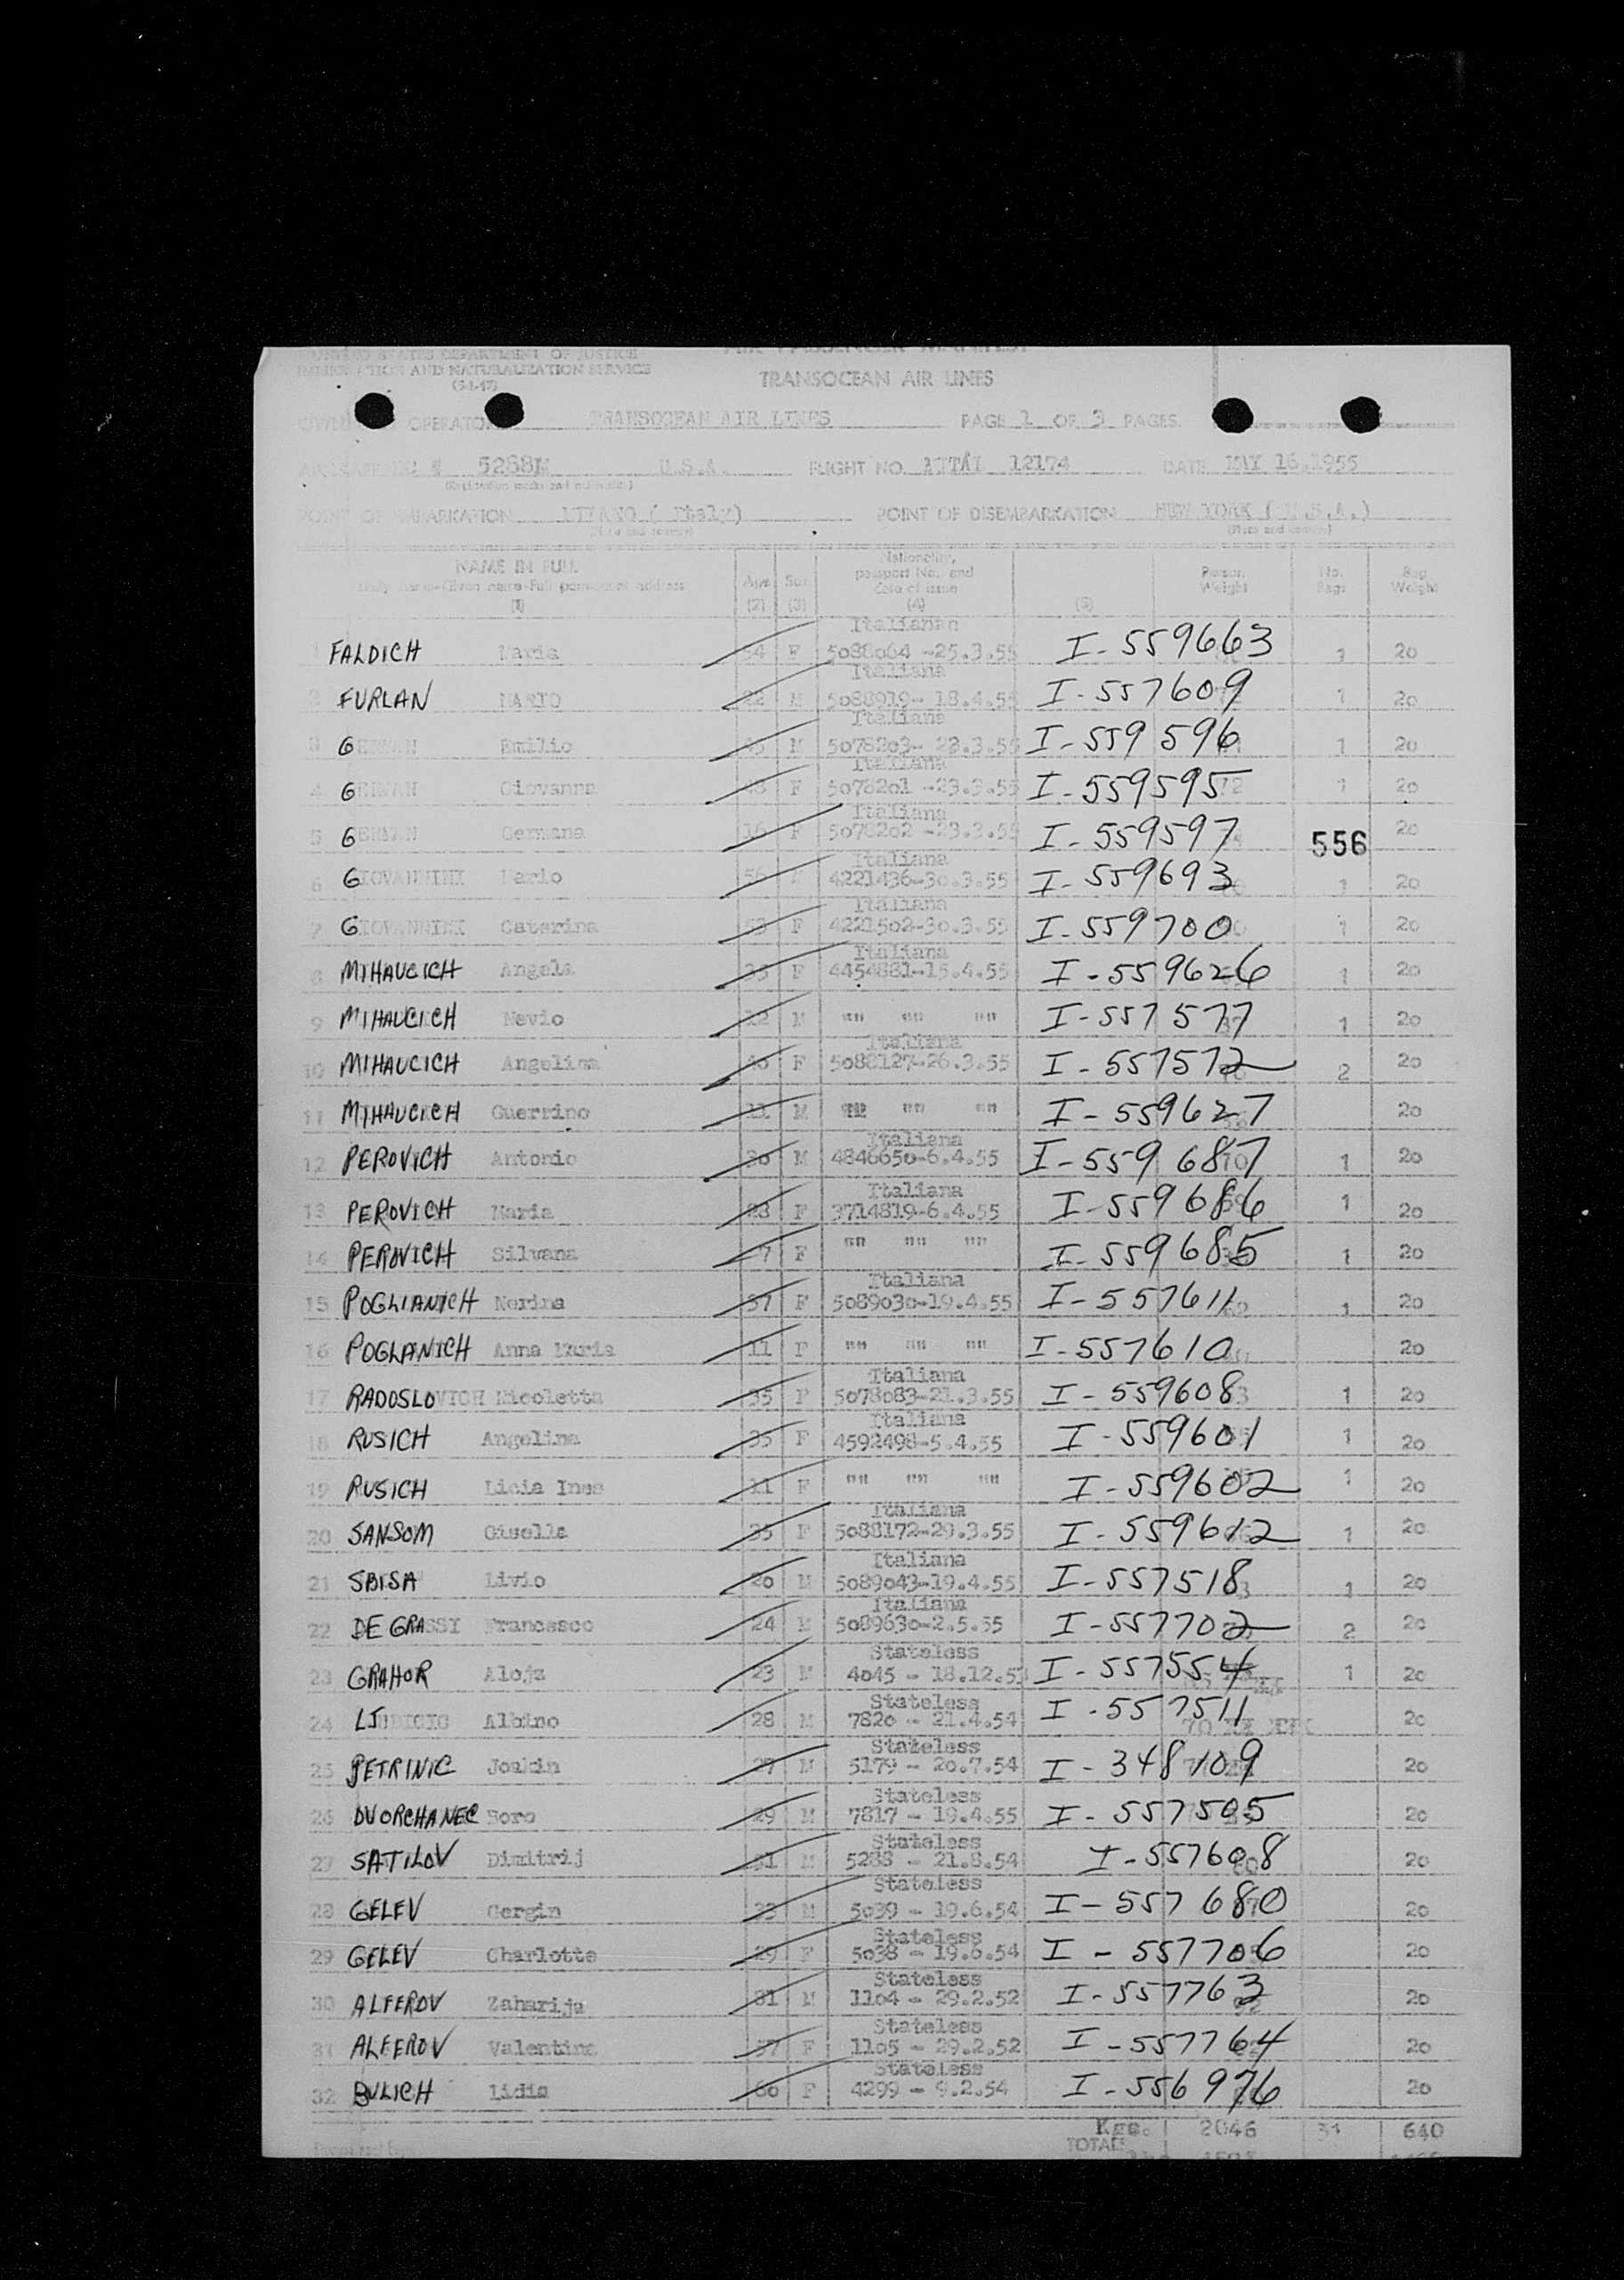 UNITED STATES DEPARTMENT OF JUSTICE
IMMIGRATION AND NATURALIZATION SERVICE
AIR PASSENGER MANIFEST
TRANSOCEAN AIR LINES
OPERATOR TRANSOCEAN AIR LINES PAGE 1 OF 3 PAGES
5288N U.S.A. FLIGHT NO. 12174 DATE MAY 16,1955
POINT OF EMBARKATION (Italy) POINT OF DISEMBARKATION NEW YORK (U.S.A.)
(Place and country) (Place and country)
NAME IN FULL Age Sex Nationality, passport No. and date of issue Person Weight No. Bags Bag Weight
(1) (2) (3) (4) (5)
Italiana
1 FALDICH Maria 54 F 5088064 -25.3.55 I-559663 1 20
Italiana
2 FURLAN MARIO 22 M 5088919- 18.4.55 I-557609 1 20
Italiana
3 GERMAN Emilio 45 M 5078203- 23.3.55 I-559596 1 20
Italiana
4 GERMAN Giovanna F 5078201 -23.3.55 I-559595 1 20
Italiana
5 GERMAN Germana 16 F 5078202 -23.3.55 I-559597 556 20
Italiana
6 GIOVANNINI Mario 56 M 4221436-30.3.55 I-559693 1 20
Italiana
7 GIOVANNINI Caterina 53 F 4221502-30.3.55 I-559700 1 20
Italiana
8 MIHAUCICH Angela 35 F 4454881-15.4.55 I-559626 1 20
9 MIHAUCICH Nevio 12 M "" "" "" I-557577 1 20
Italiana
10 MIHAUCICH Angelina F 5088127-26.3.55 I-557572 2 20
11 MIHAUCICH Guerrino 11 M "" "" "" I-559627 20
Italiana
12 PEROVICH Antonio 30 M 4846650-6.4.55 I-559687 1 20
Italiana
13 PEROVICH Maria 28 F 3714819-6.4.55 I-559686 1 20
14 PEROVICH Silvana 7 F "" "" "" I-559685 1 20
Italiana
15 POGLIANICH Nerina 37 F 5089030-19.4.55 I-557611 1 20
16 POGLANICH Anna Maria 11 F "" "" "" I-557610 20
Italiana
17 RADOSLOVICH Nicoletta 35 F 5078083-21.3.55 I-559608 1 20
Italiana
18 RUSICH Angelina 35 F 4592498-5.4.55 I-559601 1 20
19 RUSICH Licia Ines 11 F "" "" "" I-559602 1 20
Italiana
20 SANSOM Gisella 35 F 5088172-29.3.55 I-559612 1 20
Italiana
21 SBISA Livio 20 M 5089043-19.4.55 I-557518 1 20
Italiana
22 DE GRASSI Francesco 24 M 5089630-2.5.55 I-557702 2 20
Stateless
23 GRAHOR Alojz 23 M 4045 - 18.12.53 I-557554 1 20
Stateless
24 LJUBICIC Albino 28 M 7820 - 21.4.54 I-557511 20
Stateless
25 PETRINIC Joakin 27 M 5179 - 20.7.54 I-348109 20
Stateless
26 DVORCHANEC Boro 29 M 7817 - 19.4.55 I-557505 20
Stateless
27 SATILOV Dimitrij 31 M 5288 - 21.8.54 I-557608 20
Stateless
28 GELEV Gergin 33 M 5039 - 19.6.54 I-557680 20
Stateless
29 GELEV Charlotte 29 F 5038 - 19.6.54 I-557706 20
Stateless
30 ALFEROV Zaharija 81 M 1104 - 29.2.52 I-557763 20
Stateless
31 ALFEROV Valentina 57 F 1105 - 29.2.52 I-557764 20
Stateless
32 BULICH Lidia 60 F 4299 - 9.2.54 I-556976 20
Kgs. 2046 31 640
TOTALS